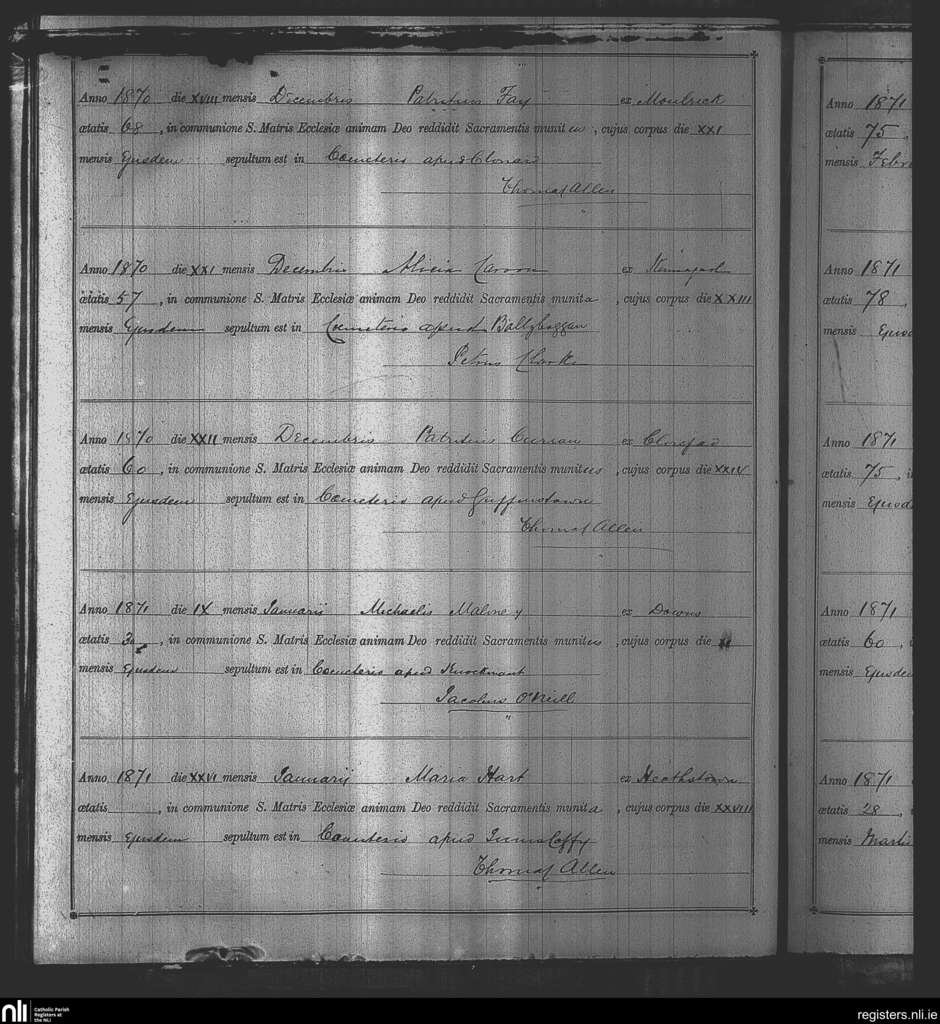 Anno 1870 die XVIII mensis Decembris Patritius Fay ex Moulrick
ætatis 68, in communione S. Matris Ecclesiæ animam Deo reddidit Sacramentis munitus, cujus corpus die XXI
mensis Ejusdem sepultum est in Cœmeterio apud Clonard
Thomas Allen
Anno 1870 die XXI mensis Decembris Alicia ex
ætatis 57, in communione S. Matris Ecclesiæ animam Deo reddidit Sacramentis munita, cujus corpus die XXIII
mensis Ejusdem sepultum est in Cœmeterio apud Ballyboggan
Petrus Clarke
Anno 1870 die XXII mensis Decembris Patritius Curran ex
ætatis 60, in communione S. Matris Ecclesiæ animam Deo reddidit Sacramentis munitus, cujus corpus die XXIV
mensis Ejusdem sepultum est in Cœmeterio apud Griffinstown
Thomas Allen
Anno 1871 die IX mensis Januarii Michaelis Maloney ex Downs
ætatis, in communione S. Matris Ecclesiæ animam Deo reddidit Sacramentis munitus, cujus corpus die
mensis Ejusdem sepultum est in Cœmeterio apud Knockmant
Jacobus O'Neill
Anno 1871 die XXVI mensis Januarij Maria Hart ex Heathstown
ætatis , in communione S. Matris Ecclesiæ animam Deo reddidit Sacramentis munita, cujus corpus die XXVIII
mensis Ejusdem sepultum est in Cœmeterio apud
Thomas Allen
Anno 1871
ætatis 75,
mensis
Anno 1871
ætatis 78,
mensis
Anno 1871
ætatis 75,
mensis
Anno 1871
ætatis 60,
mensis
Anno 1871
ætatis 28,
mensis
nli Catholic Parish
Registers at
the NLI
registers.nli.ie